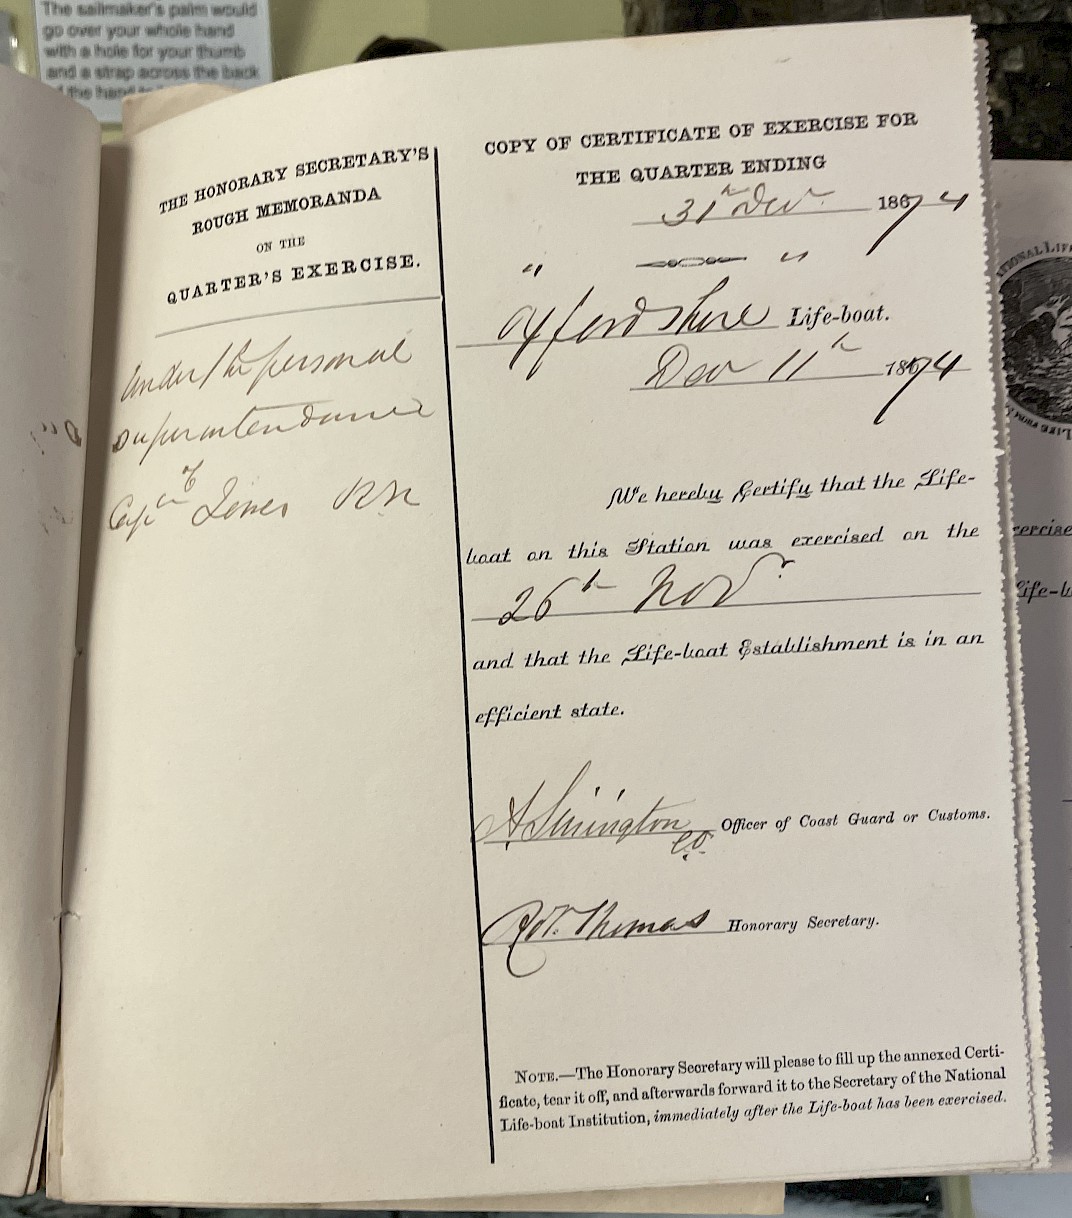 The sailmaker's palm would
go over your whole hand
with a hole for your thumb
and a strap across the back
the hand
THE HONORARY SECRETARY'S
ROUGH MEMORANDA
ON THE
QUARTER'S EXERCISE.
Under the personal
superintendance
of
Captn Jones RN
COPY OF CERTIFICATE OF EXERCISE FOR
THE QUARTER ENDING
31st Decr 1874
" "
Oxfordshire Life-boat.
Decr 11th 1874
We hereby Certify that the Life-
boat on this Station was exercised on the
26th Novr
and that the Life-boat Establishment is in an
efficient state.
Officer of Coast Guard or Customs.
Robt. Thomas Honorary Secretary.
NOTE.—The Honorary Secretary will please to fill up the annexed Certi-
ficate, tear it off, and afterwards forward it to the Secretary of the National
Life-boat Institution, immediately after the Life-boat has been exercised.